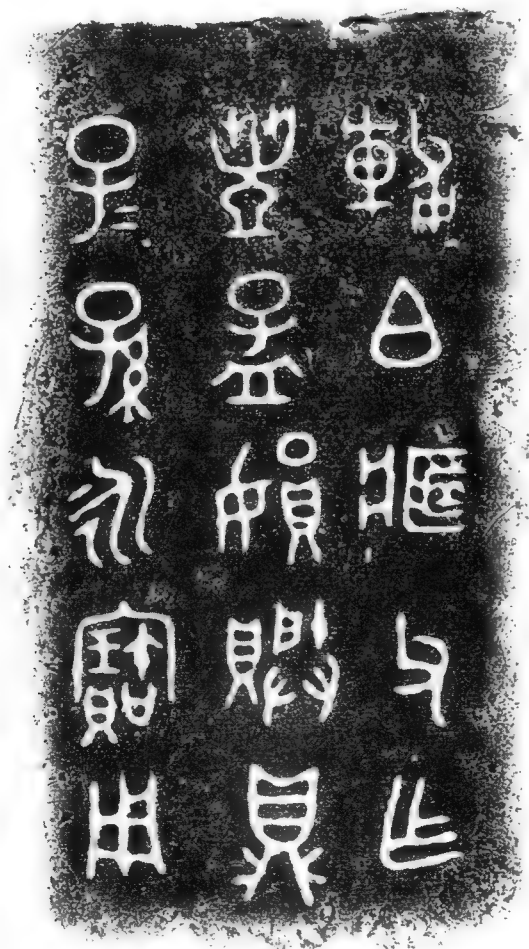 輔白父乍
豐孟妘賸鼎
子=孫永寶用